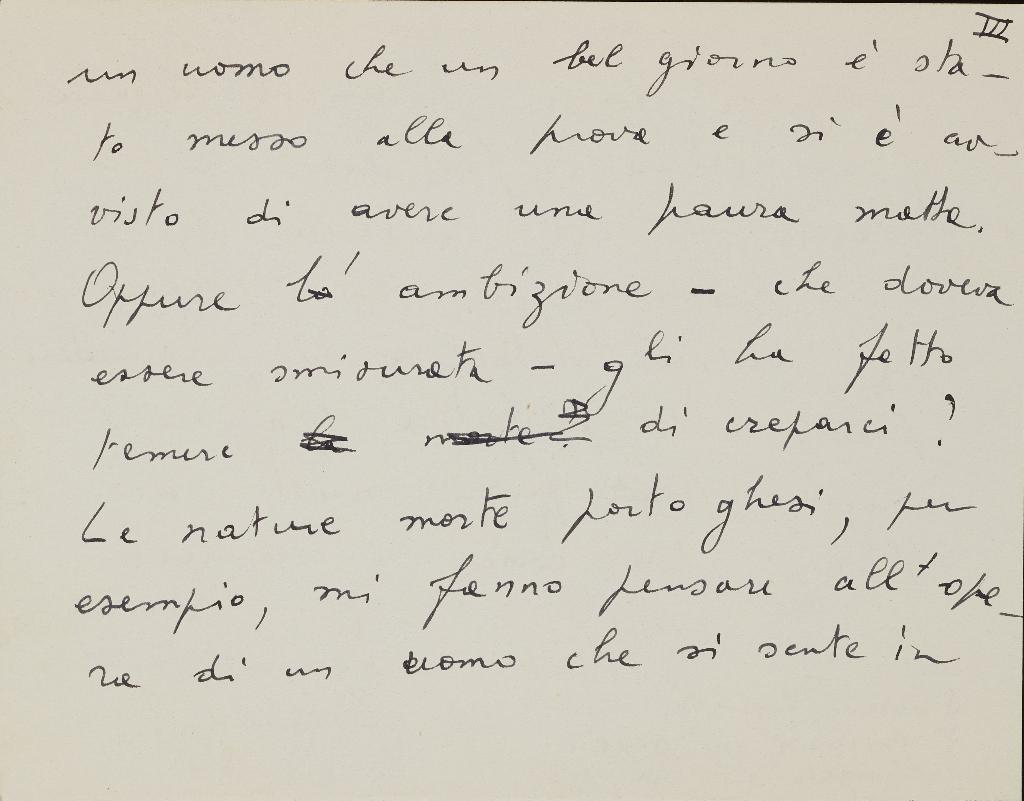 III
un uomo che un bel giorno è sta-
to messo alla prova e si è av-
visto di avere una paura matta.
Oppure l'ambizione - che doveva
essere smisurata - gli ha fatto
temere la morte? di creparci?
Le nature morte portoghesi, per
esempio, mi fanno pensare all'ope-
ra di un uomo che si sente in